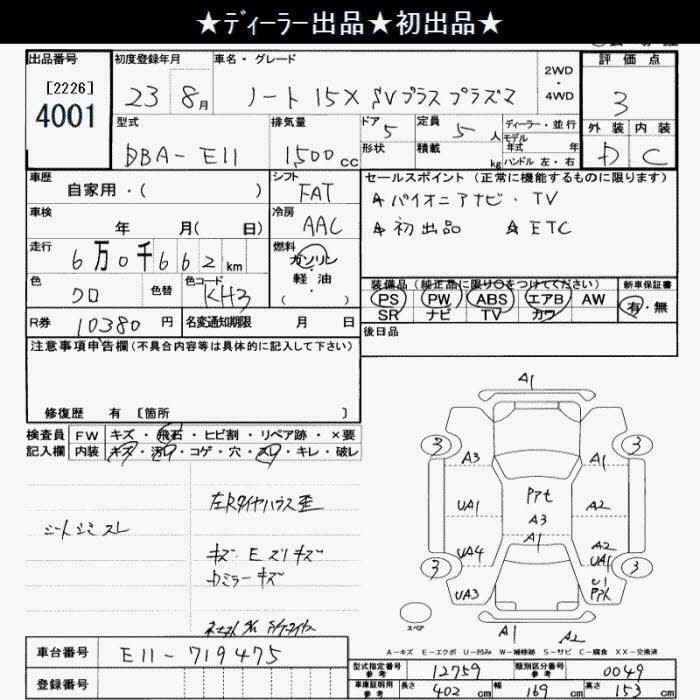 ★ディーラー出品★初出品★
出品番号
[2226]
4001
初度登録年月
23 8月
車名・グレード
ノート 15X SVプラス プラズマ
2WD
・
4WD
評価点
3
外装 内装
D C
型式
DBA-E11
排気量
1,500cc
ドア 5
形状
定員 5人
積載 kg
ディーラー・並行
モデル
年式 年
ハンドル 左・右
車歴
自家用・( )
シフト
FAT
セールスポイント (正常に機能するものに限ります)
☆パイオニアナビ・TV
☆初出品 ☆ETC
車検
年 月( 日)
冷房
AAC
走行
6万0千662km
燃料
ガソリン
軽・油
( ・ )
色
クロ
色替
色コード
KH3
装備品 (純正品に限り○をつけてください)
PS PW ABS エアB AW
SR ナビ TV カワ
新車保証書
有・無
R券 10380円
名変通知期限 月 日
後日品
注意事項申告欄(不具合内容等は具体的に記入して下さい)
修復歴 有 [箇所 ]
検査員
記入欄
FW キズ・飛石・ヒビ割・リペア跡・×要
内装 キズ・汚れ・コゲ・穴・スレ・キレ・破レ
シートシミ スレ
左Rタイヤハウス歪
キズ E スリキズ
Dミラーキズ
A1
3 3
A3 A1
Ppt
UA1 A3 A2
A1
UA4 A2
UA1
3 3
UA3 U1
Ppk
スペア
A1 A2
A-キズ E-エクボ U-凹み W-補修跡 S-サビ C-腐食 XX-交換済
車台番号 E11-719475
登録番号
型式指定番号
参考
12759
類別区分番号
参考
0049
車庫証明用
参考
長さ 402cm 幅 169cm 高さ 153cm